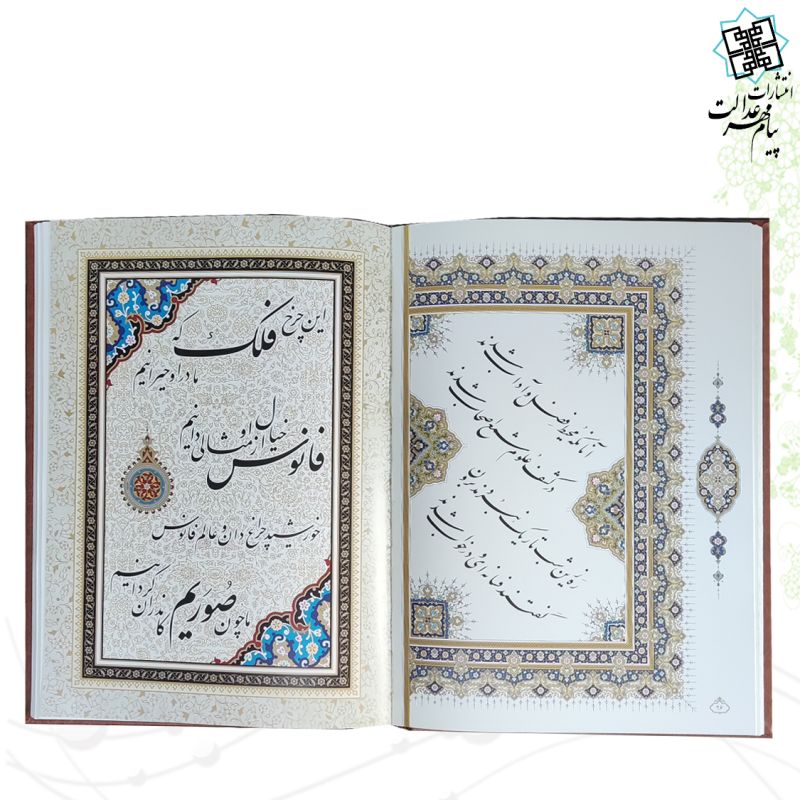 انتشارات
پیام مهر عدالت
آنانکه محیط فضل و آداب شدند
در کشف علوم شمع اصحاب شدند
ره زین شب تاریک نبردند برون
گفتند فسانه‌ای و در خواب شدند
این چرخ فلک که
ما در او حیرانیم
فانوس خیال از او
مثالی دانیم
خورشید چراغ دان و عالم فانوس
ما چون صوریم
کاندران گردانیم